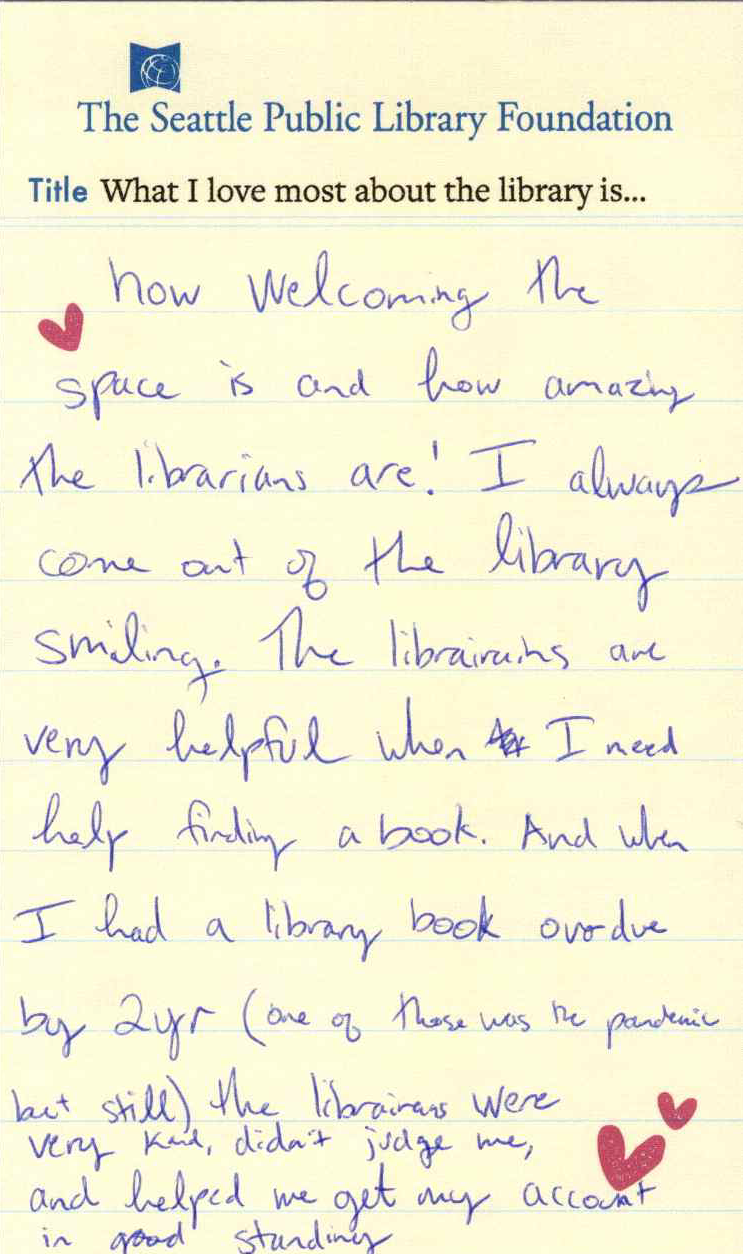 The Seattle Public Library Foundation
Title What I love most about the library is...
how welcoming the
space is and how amazing
the librarians are! I always
come out of the library
smiling. The librairains are
very helpful when I need
help finding a book. And when
I had a library book overdue
by 2yr (one of those was the pandemic
but still) the librairans were
very kind, didn't judge me,
and helped me get my account
in good standing